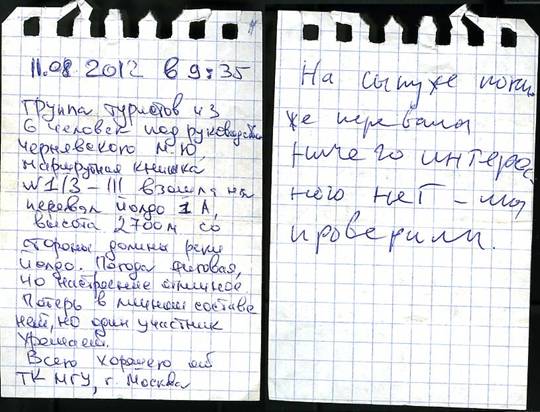 11.08.2012 в 9:35
Группа туристов из
6 человек под руководством
Чернявского М.Ю
маршрутная книжка
№1/3-III взошла на
перевал Иолдо 1А,
высота 2700м со
стороны долины реки
Иолдо. Погода фиговая,
но настроение отличное
Потерь в личном составе
нет, но один участник
Всего хорошего
ТК МГУ, г. Москва
На сыпухе пони
же перевала
ничего интерес
ного нет - мы
проверили.